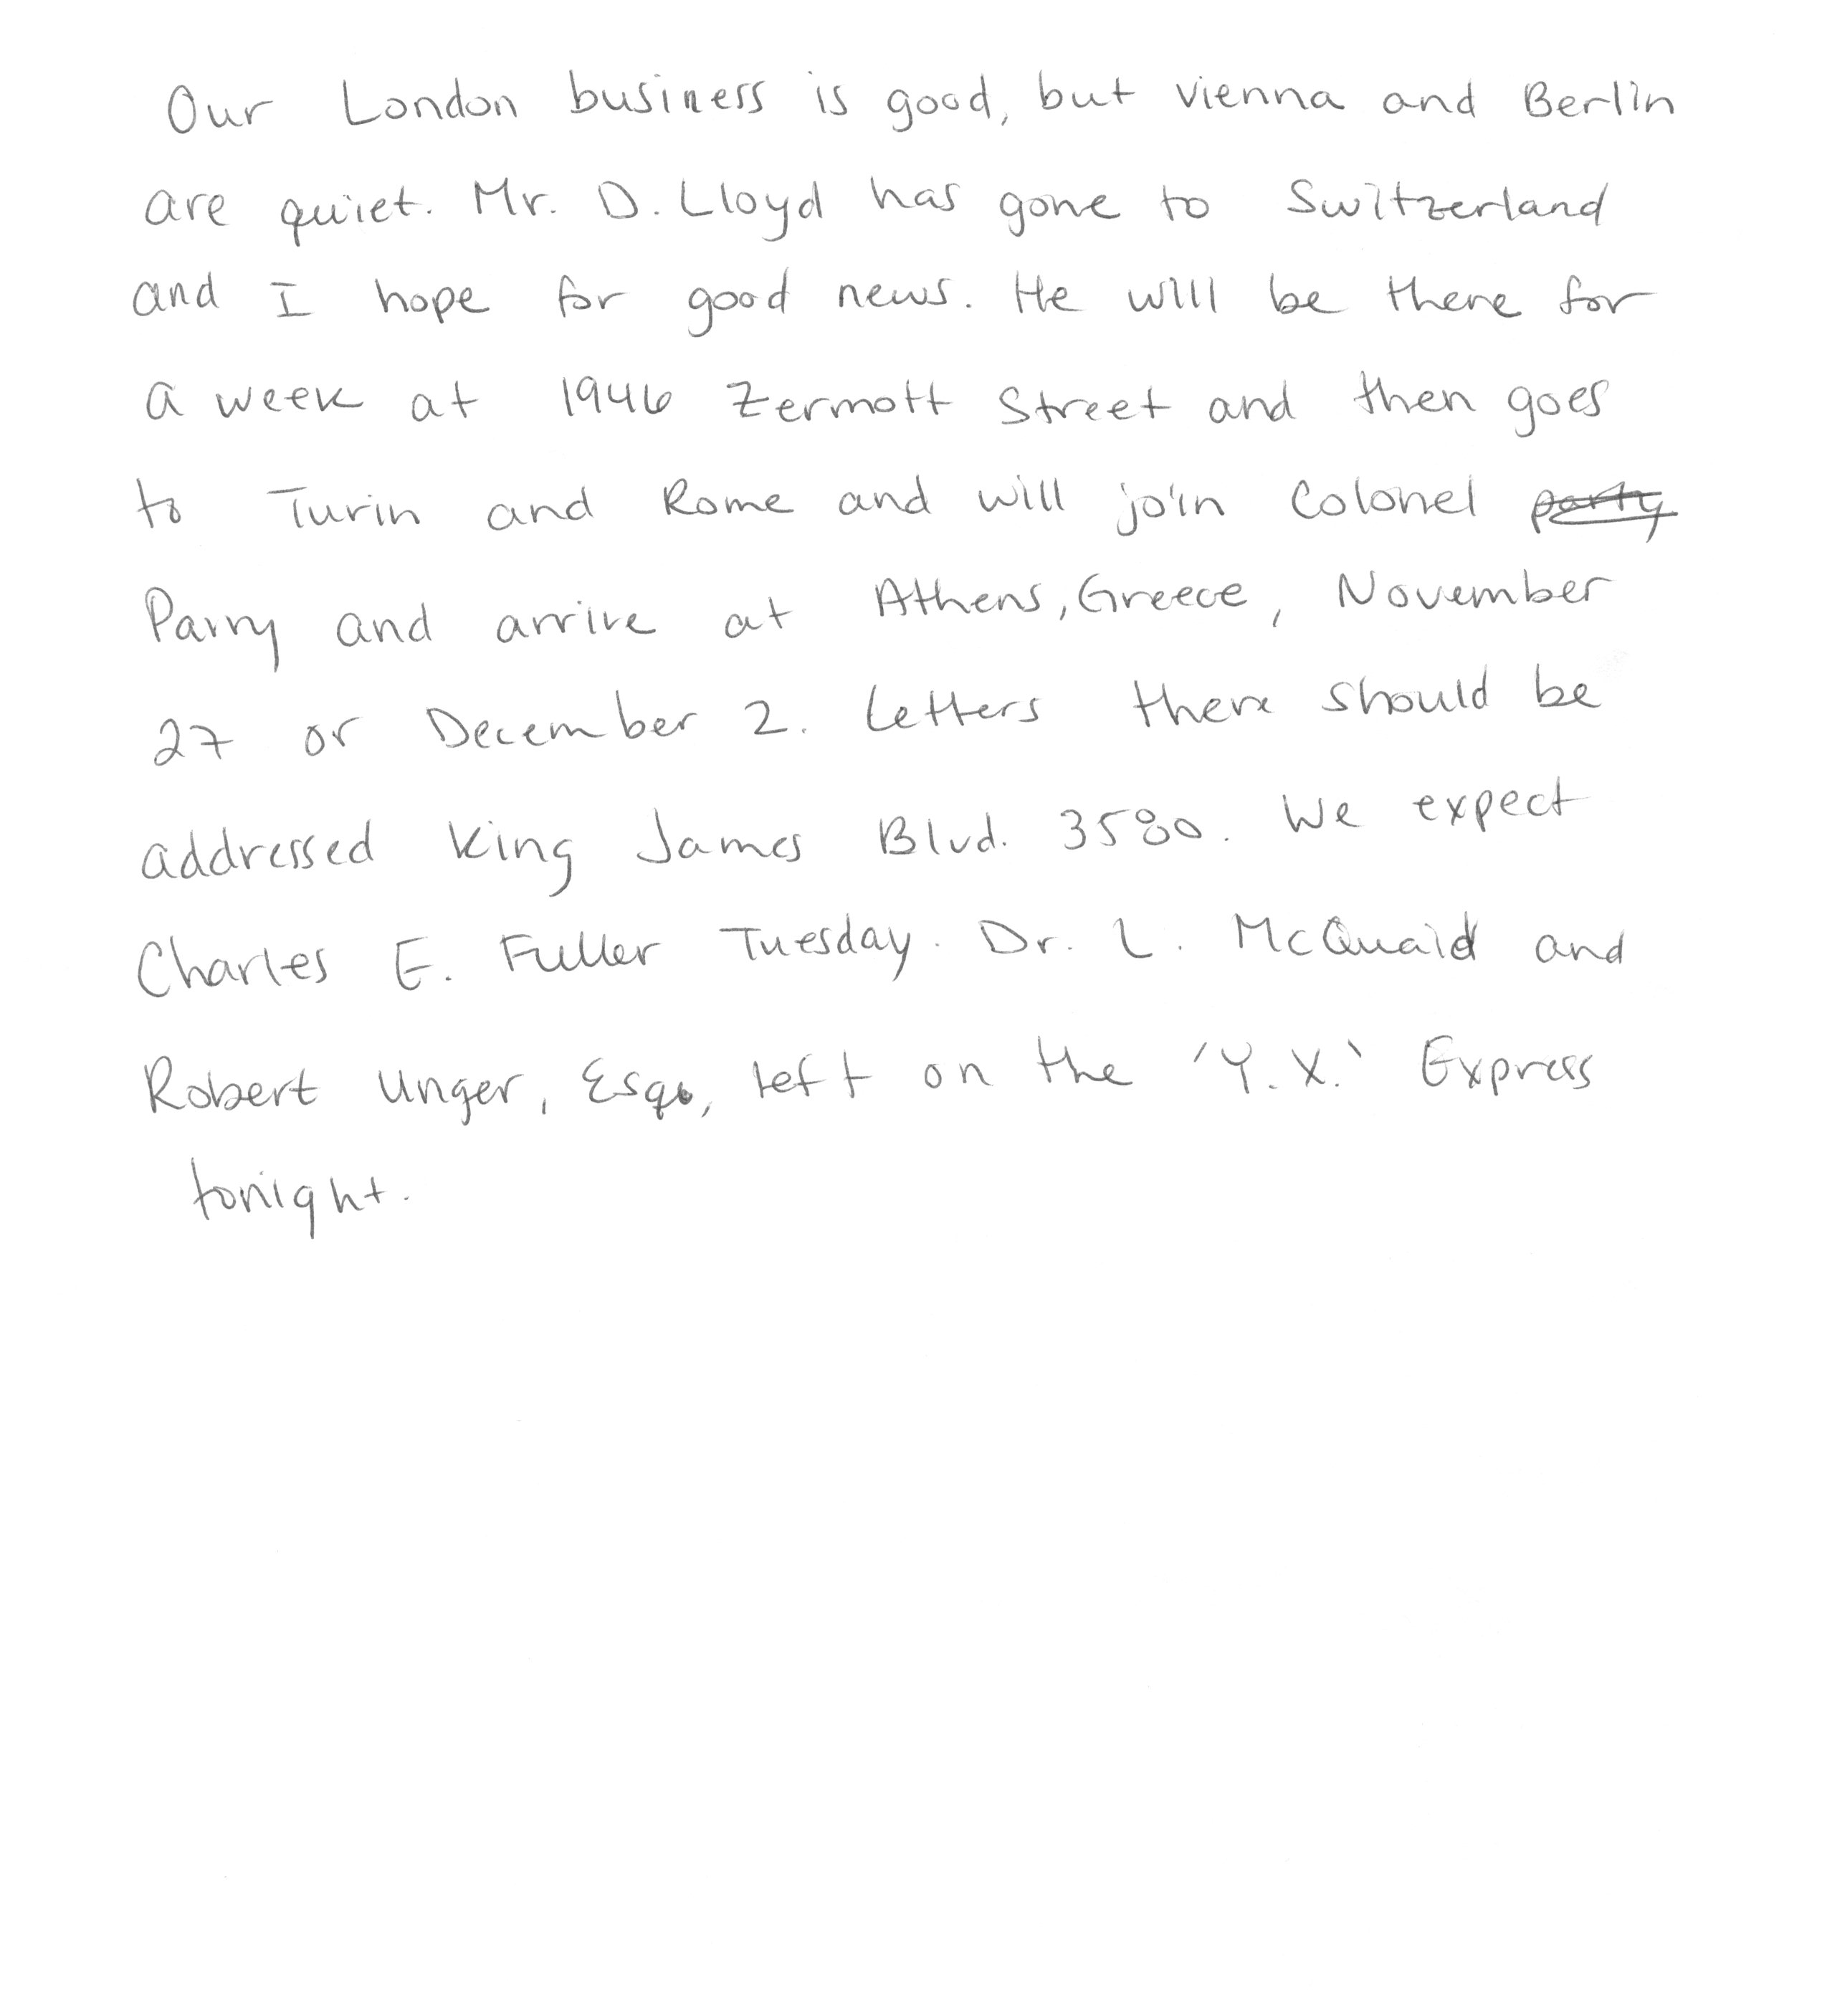 Our London business is good, but vienna and Berlin
are quiet. Mr. D. Lloyd has gone to Switzerland
and I hope for good news. He will be there for
a week at 1946 Zermott Street and then goes
to Turin and Rome and will join Colonel party
Parry and arrive at Athens, Greece, November
27 or December 2. Letters there should be
addressed King James Blvd. 3580. We expect
Charles E. Fuller Tuesday. Dr. L. McQuaid and
Robert Unger, Esq., left on the 'Y.X.' Express
tonight.